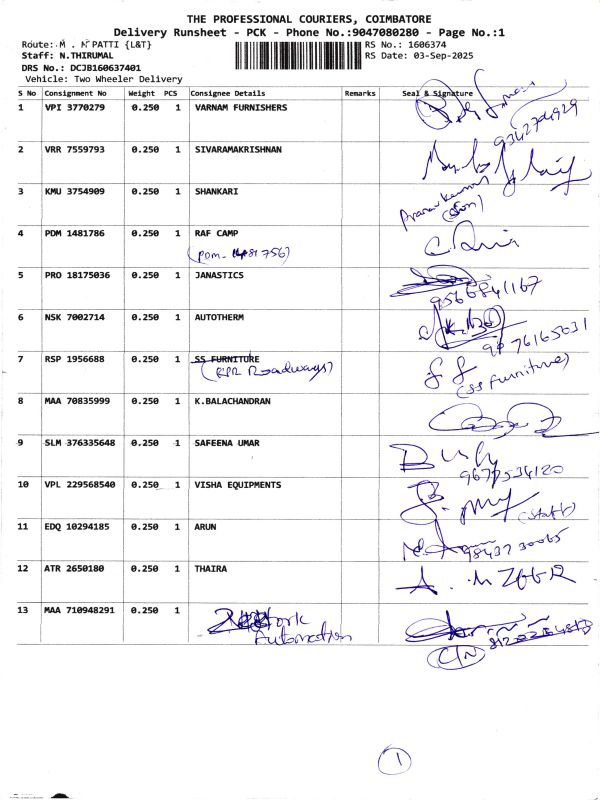 THE PROFESSIONAL COURIERS, COIMBATORE
Delivery Runsheet - PCK - Phone No.:9047080280 - Page No.:1
Route: M . N PATTI {L&T}
RS No.: 1606374
Staff: N.THIRUMAL
RS Date: 03-Sep-2025
DRS No.: DCJB160637401
Vehicle: Two Wheeler Delivery
S No Consignment No Weight PCS Consignee Details Remarks Seal & Signature
1 VPI 3770279 0.250 1 VARNAM FURNISHERS
9342774929
2 VRR 7559793 0.250 1 SIVARAMAKRISHNAN
3 KMU 3754909 0.250 1 SHANKARI
(Son)
4 PDM 1481786 0.250 1 RAF CAMP
5 PRO 18175036 0.250 1 JANASTICS
9566841167
6 NSK 7002714 0.250 1 AUTOTHERM
7 RSP 1956688 0.250 1 SS FURNITURE
(KPR Roadways)
(SS Furniture)
8 MAA 70835999 0.250 1 K.BALACHANDRAN
9 SLM 376335648 0.250 1 SAFEENA UMAR
10 VPL 229568540 0.250 1 VISHA EQUIPMENTS
(Staff)
11 EDQ 10294185 0.250 1 ARUN
98437 30065
12 ATR 2650180 0.250 1 THAIRA
13 MAA 710948291 0.250 1
Automation
C/N
1